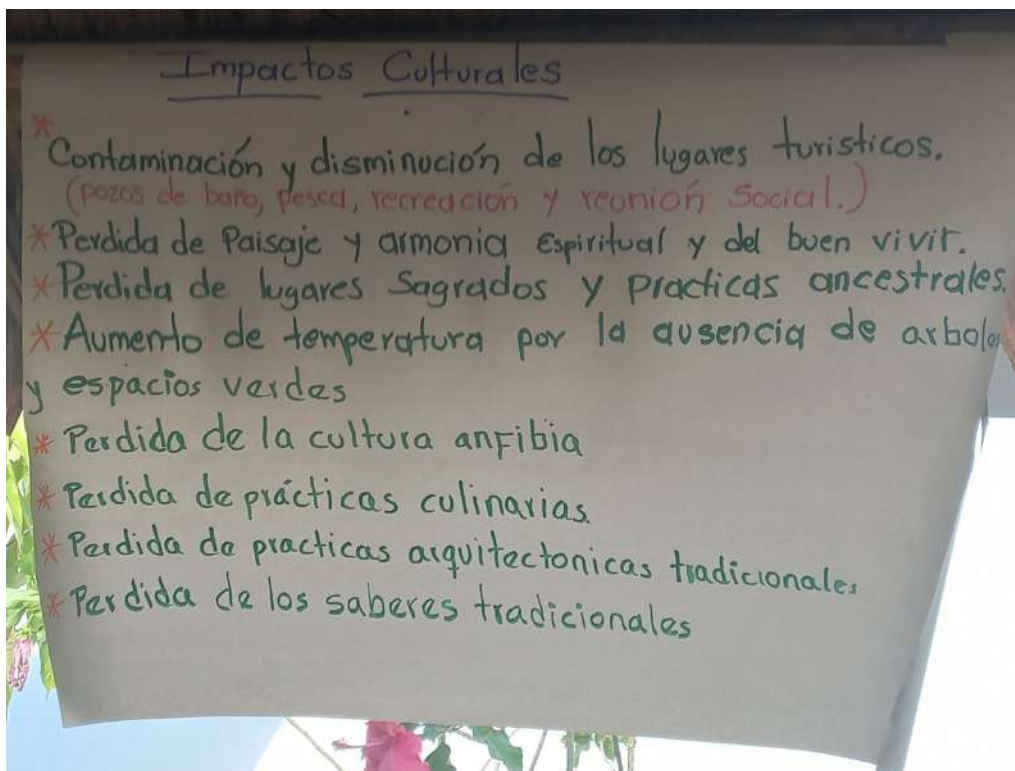 Impactos Culturales
* Contaminación y disminución de los lugares turisticos.
(pozos de baño, pesca, recreación y reunión Social.)
* Perdida de Paisaje y armonia Espiritual y del buen vivir.
* Perdida de lugares Sagrados y Practicas ancestrales.
* Aumento de temperatura por la ausencia de arboles
y espacios verdes
* Perdida de la cultura anfibia
* Perdida de prácticas culinarias.
* Perdida de practicas arquitectonicas tradicionales
* Perdida de los saberes tradicionales